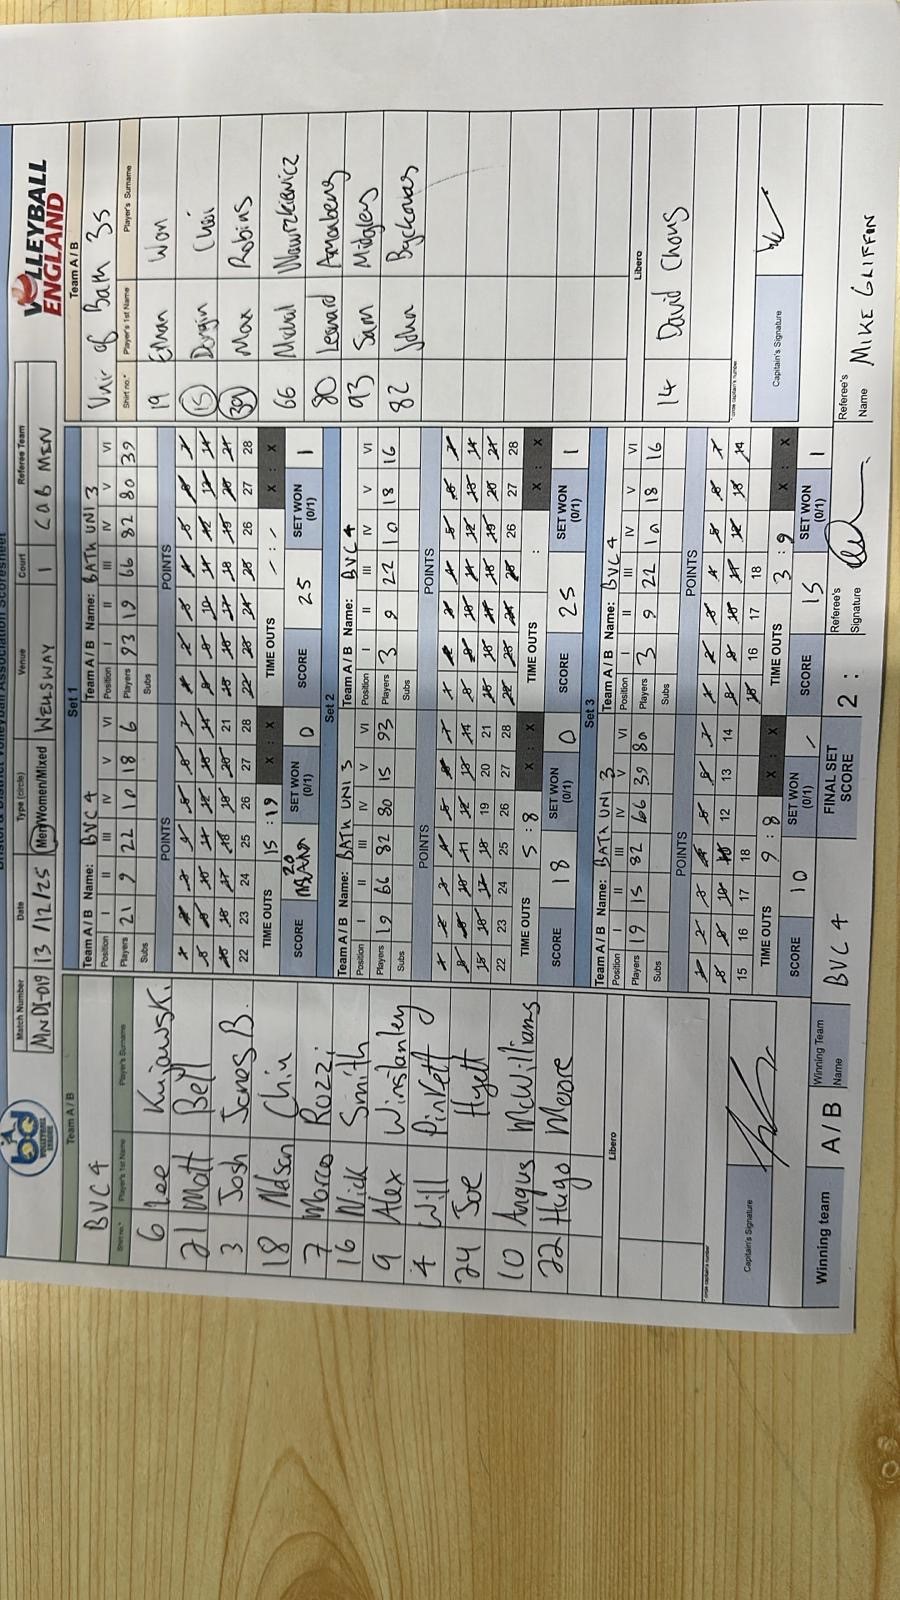 Bristol & District Volleyball Association Scoresheet
Match Number Date Type (circle) Venue Court Referee Team
MND1-019 13/12/25 Men/Women/Mixed WELLSWAY 1 COB MEN
VOLLEYBALL ENGLAND
Team A / B
BVC 4
Shirt no.* Player's 1st Name Player's Surname
6 Lee Kujawski
21 Matt Bell
3 Josh Jones B.
18 Nelson Chin
7 Marco Rozzi
16 Nick Smith
9 Alex Winstanley
4 Will Pinkett
24 Joe Hyett
10 Angus McWilliams
22 Hugo Moore
Libero
* circle captain's number
Captain's Signature
Set 1
Team A / B Name: BVC 4
Position I II III IV V VI
Players 21 9 22 10 18 6
Subs
POINTS
1 2 3 4 5 6 7
8 9 10 11 12 13 14
15 16 17 18 19 20 21
22 23 24 25 26 27 28
TIME OUTS 15 : 19 X : X
SCORE 20 SET WON (0/1) 0
Team A / B Name: BATH UNI 3
Position I II III IV V VI
Players 93 19 66 82 80 39
Subs
POINTS
1 2 3 4 5 6 7
8 9 10 11 12 13 14
15 16 17 18 19 20 21
22 23 24 25 26 27 28
TIME OUTS - : - X : X
SCORE 25 SET WON (0/1) 1
Set 2
Team A / B Name: BATH UNI 3
Position I II III IV V VI
Players 19 66 82 80 15 93
Subs
POINTS
1 2 3 4 5 6 7
8 9 10 11 12 13 14
15 16 17 18 19 20 21
22 23 24 25 26 27 28
TIME OUTS 5 : 8 X : X
SCORE 18 SET WON (0/1) 0
Team A / B Name: BVC 4
Position I II III IV V VI
Players 3 9 22 10 18 16
Subs
POINTS
1 2 3 4 5 6 7
8 9 10 11 12 13 14
15 16 17 18 19 20 21
22 23 24 25 26 27 28
TIME OUTS : X : X
SCORE 25 SET WON (0/1) 1
Set 3
Team A / B Name: BATH UNI 3
Position I II III IV V VI
Players 19 15 82 66 39 80
Subs
POINTS
1 2 3 4 5 6 7
8 9 10 11 12 13 14
15 16 17 18
TIME OUTS 9 : 8 X : X
SCORE 10 SET WON (0/1) /
Team A / B Name: BVC 4
Position I II III IV V VI
Players 3 9 22 10 18 16
Subs
POINTS
1 2 3 4 5 6 7
8 9 10 11 12 13 14
15 16 17 18
TIME OUTS 3 : 9 X : X
SCORE 15 SET WON (0/1) 1
Team A / B
Univ of Bath 3s
Shirt no.* Player's 1st Name Player's Surname
19 Ethan Won
15 Chai
39 Max Robins
66 Michal Wawrzkiewicz
80 Leonard
93 Sam Midgley
82 John
Libero
14 David Chong
* circle captain's number
Captain's Signature
Winning team A / B Winning Team Name BVC 4 FINAL SET SCORE 2 : Referee's Signature Referee's Name MIKE GRIFFIN